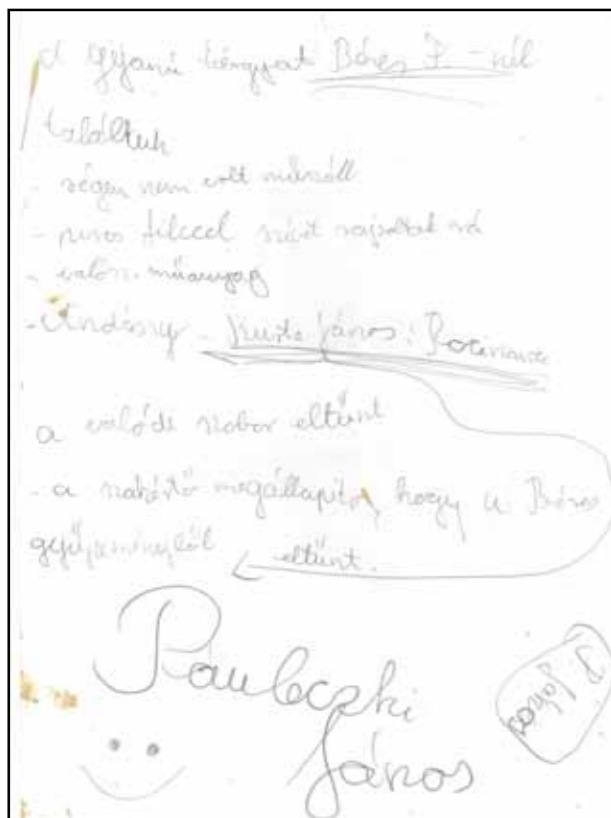 A gyanú tárgyat Béres J. -nél
találtuk
- régen nem volt műnáll
- piros filccel szívet rajzoltak rá
- valósz. műanyag
- Andássy - Kuszto János: Rocinante
a valódi szobor eltűnt
- a szakértő megállapította, hogy a Béres
gyűjteményből eltűnt.
Pauleczki
János
P. János